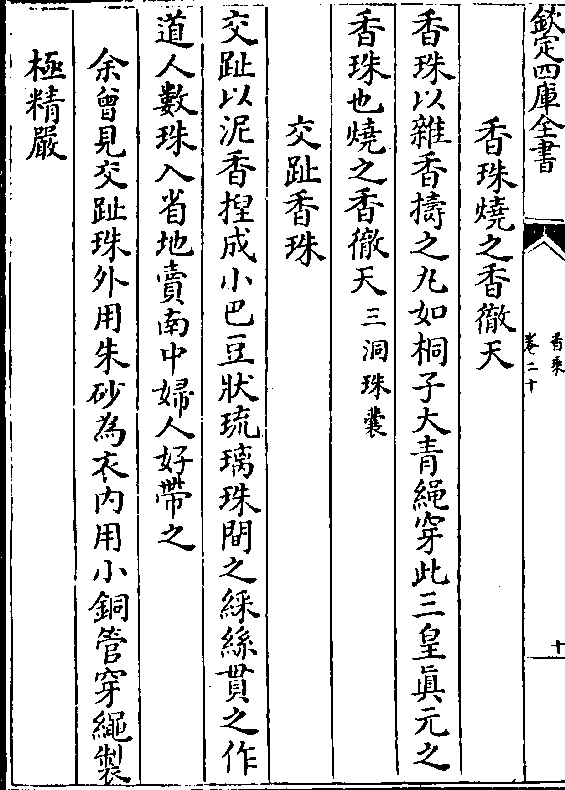 欽定四庫全書
香乘
卷二十
十
香珠燒之香徹天
香珠以雜香擣之丸如桐子大青繩穿此三皇眞元之
香珠也燒之香徹天三洞珠囊
交趾香珠
交趾以泥香揑成小巴豆狀琉璃珠間之綵絲貫之作
道人數珠入省地賣南中婦人好帶之
余曾見交趾珠外用朱砂為衣内用小銅管穿繩製
極精嚴